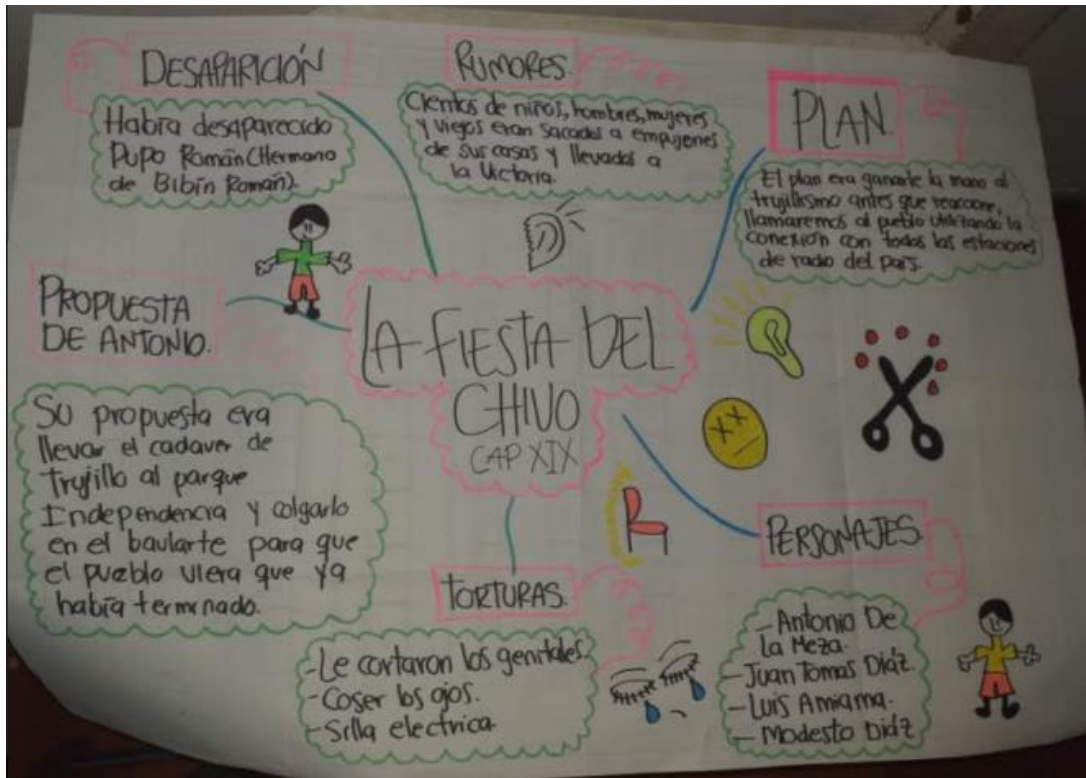 DESAPARICIÓN
Habra desaparecido
Pupo Román (Hermano
de Bibín Román)
RUMORES.
Cientos de niños, hombres, mujeres
y viejos eran sacados a empujones
de sus casas y llevados a
la Victoria.
PLAN.
El plan era ganarle la mano al
trujillismo antes que reaccione,
llamaremos al pueblo utilizando la
conexión con todas las estaciones
de radio del país.
PROPUESTA
DE ANTONIO.
Su propuesta era
llevar el cadaver de
trujillo al parque
Independencia y colgarlo
en el baularte para que
el pueblo viera que ya
había terminado.
LA FIESTA DEL
CHIVO
CAP XIX
TORTURAS.
-Le cortaron los genitales.
-Coser los ojos.
-Silla electrica
PERSONAJES.
-Antonio De
la Meza.
-Juan Tomas Diáz.
-Luis Amiama.
-Modesto Diáz